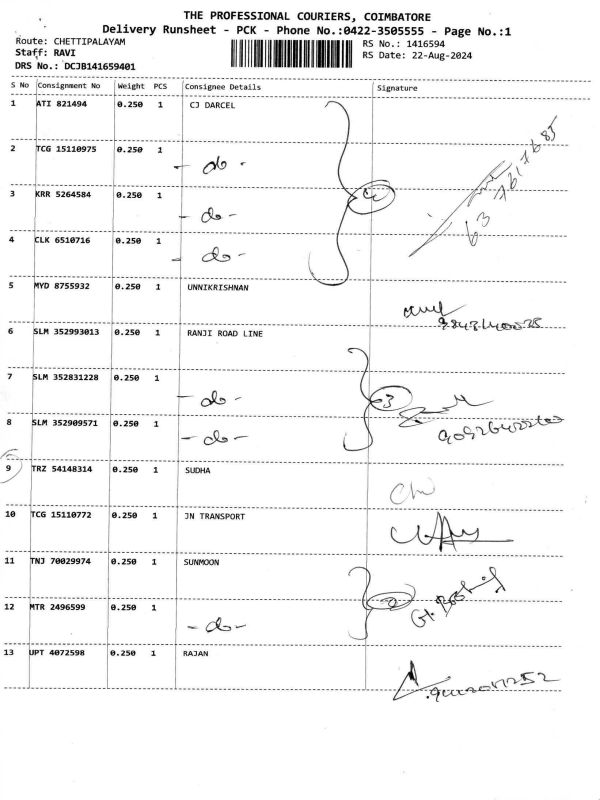 THE PROFESSIONAL COURIERS, COIMBATORE
Delivery Runsheet - PCK - Phone No.:0422-3505555 - Page No.:1
Route: CHETTIPALAYAM RS No.: 1416594
Staff: RAVI RS Date: 22-Aug-2024
DRS No.: DCJB141659401
S No Consignment No Weight PCS Consignee Details Signature
1 ATI 821494 0.250 1 CJ DARCEL
2 TCG 15110975 0.250 1
- do -
3 KRR 5264584 0.250 1
- do -
4 CLK 6510716 0.250 1
- do -
5 MYD 8755932 0.250 1 UNNIKRISHNAN
6 SLM 352993013 0.250 1 RANJI ROAD LINE
7 SLM 352831228 0.250 1
- do -
3
8 SLM 352909571 0.250 1
- do -
9 TRZ 54148314 0.250 1 SUDHA
10 TCG 15110772 0.250 1 JN TRANSPORT
11 TNJ 70029974 0.250 1 SUNMOON
12 MTR 2496599 0.250 1
2
- do -
13 UPT 4072598 0.250 1 RAJAN